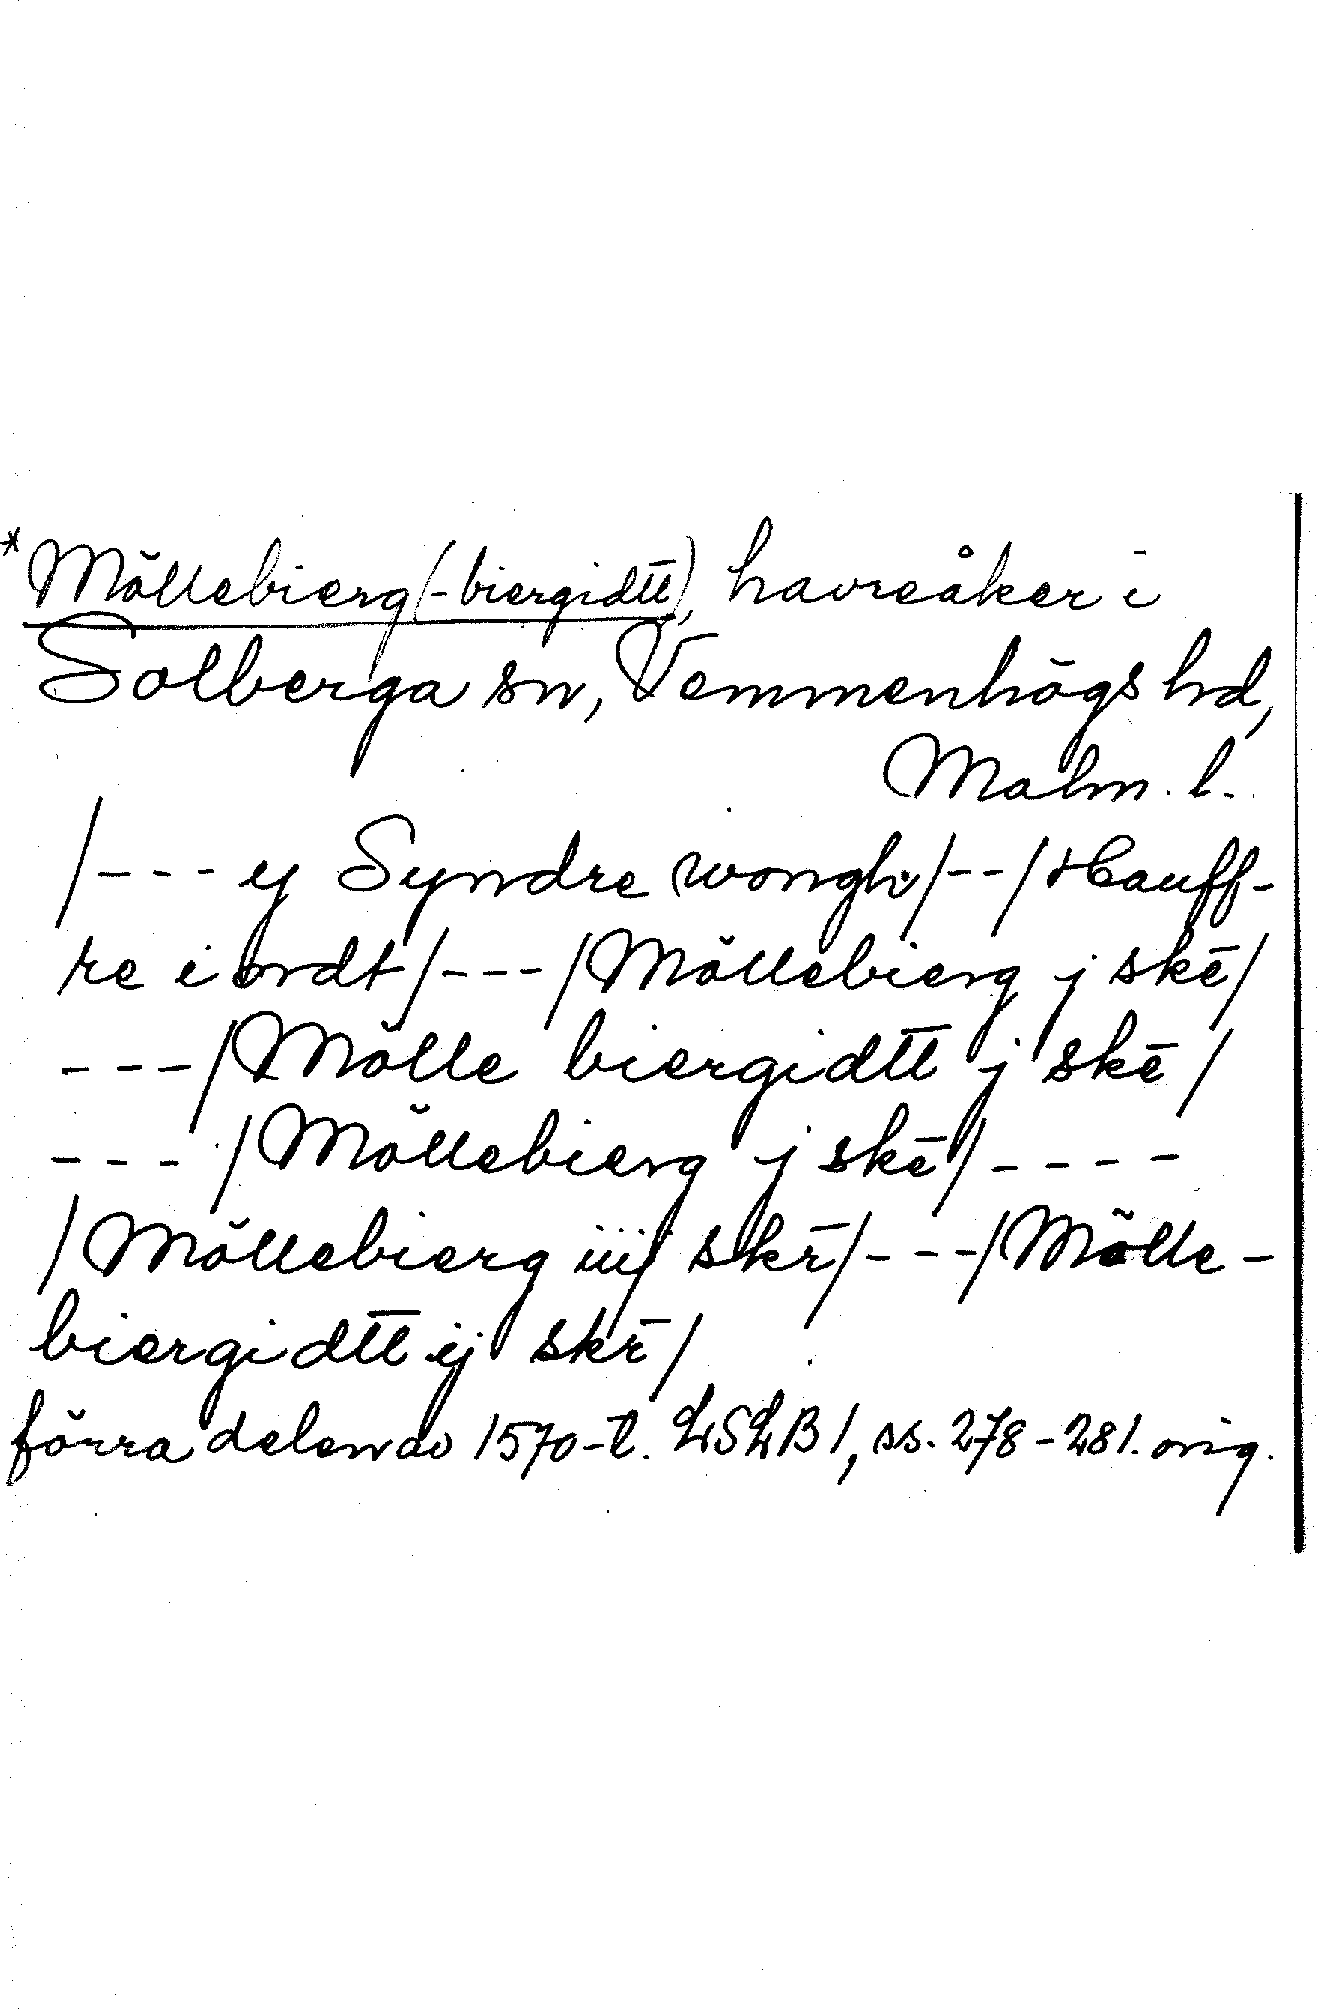 *Möllebierg (-biergidtt), havreåker i
Solberga sn, Vemmenhögs hd,
Malm. l.
/--- ij Syndre wongh /--/ Hauff-
re iordt /---/ Möllebierg j skē /
---/ Mölle biergidtt j skē /
--- / Möllebierg j skē /----
/ Möllebierg iiij skr̄ /---/ Mölle-
biergidtt ij skr̄ /
förra delen av 1570-t. LSLB 1, ss. 278-281. orig.